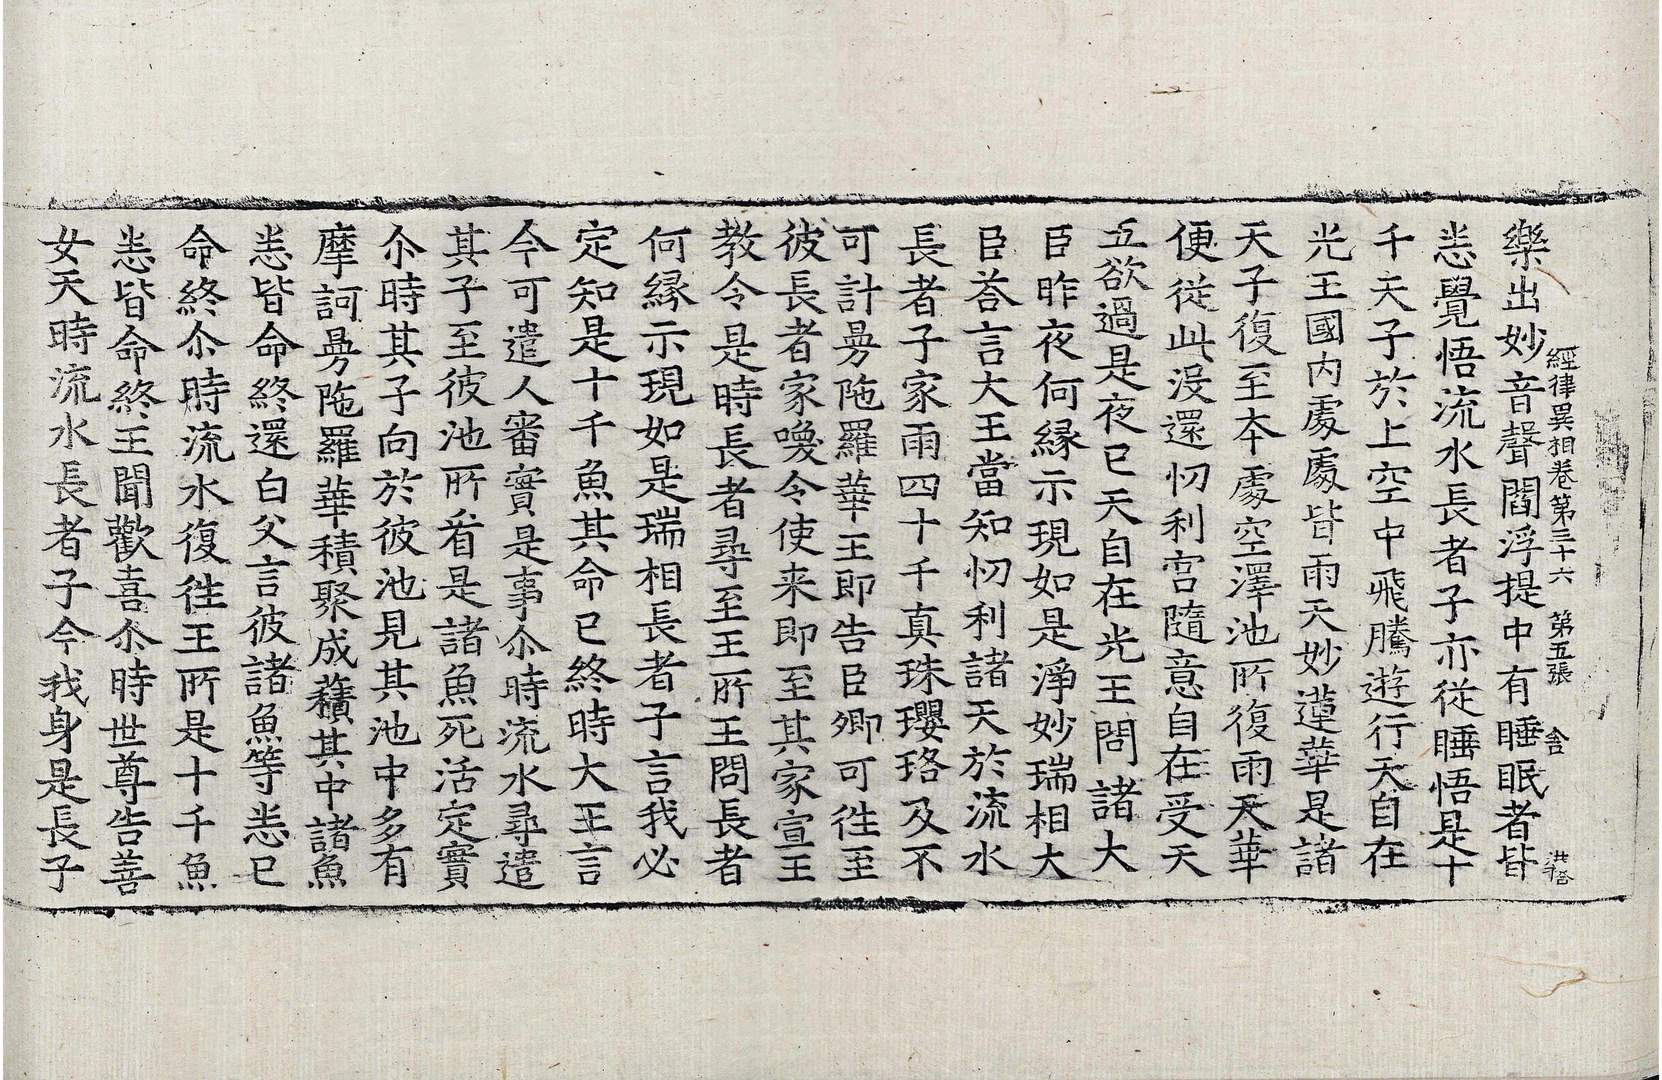 經律異相卷第三十六 第五張 舍
樂出妙音聲閻浮提中有睡眠者皆
悉覺悟流水長者子亦從睡悟是十
千天子於上空中飛騰遊行天自在
光王國內處處皆雨天妙蓮華是諸
天子復至本處空澤池所復雨天華
便從此沒還忉利宮隨意自在受天
五欲過是夜已天自在光王問諸大
臣昨夜何緣示現如是淨妙瑞相大
臣荅言大王當知忉利諸天於流水
長者子家雨四十千真珠瓔珞及不
可計曼陁羅華王即告臣卿可往至
彼長者家喚令使来即至其家宣王
教令是時長者尋至王所王問長者
何緣示現如是瑞相長者子言我必
定知是十千魚其命已終時大王言
今可遣人審實是事尒時流水尋遣
其子至彼池所看是諸魚死活定實
尒時其子向於彼池見其池中多有
摩訶曼陁羅華積聚成䕆其中諸魚
悉皆命終還白父言彼諸魚等悉已
命終尒時流水復往王所是十千魚
悉皆命終王聞歡喜尒時世尊告善
女天時流水長者子今我身是長子